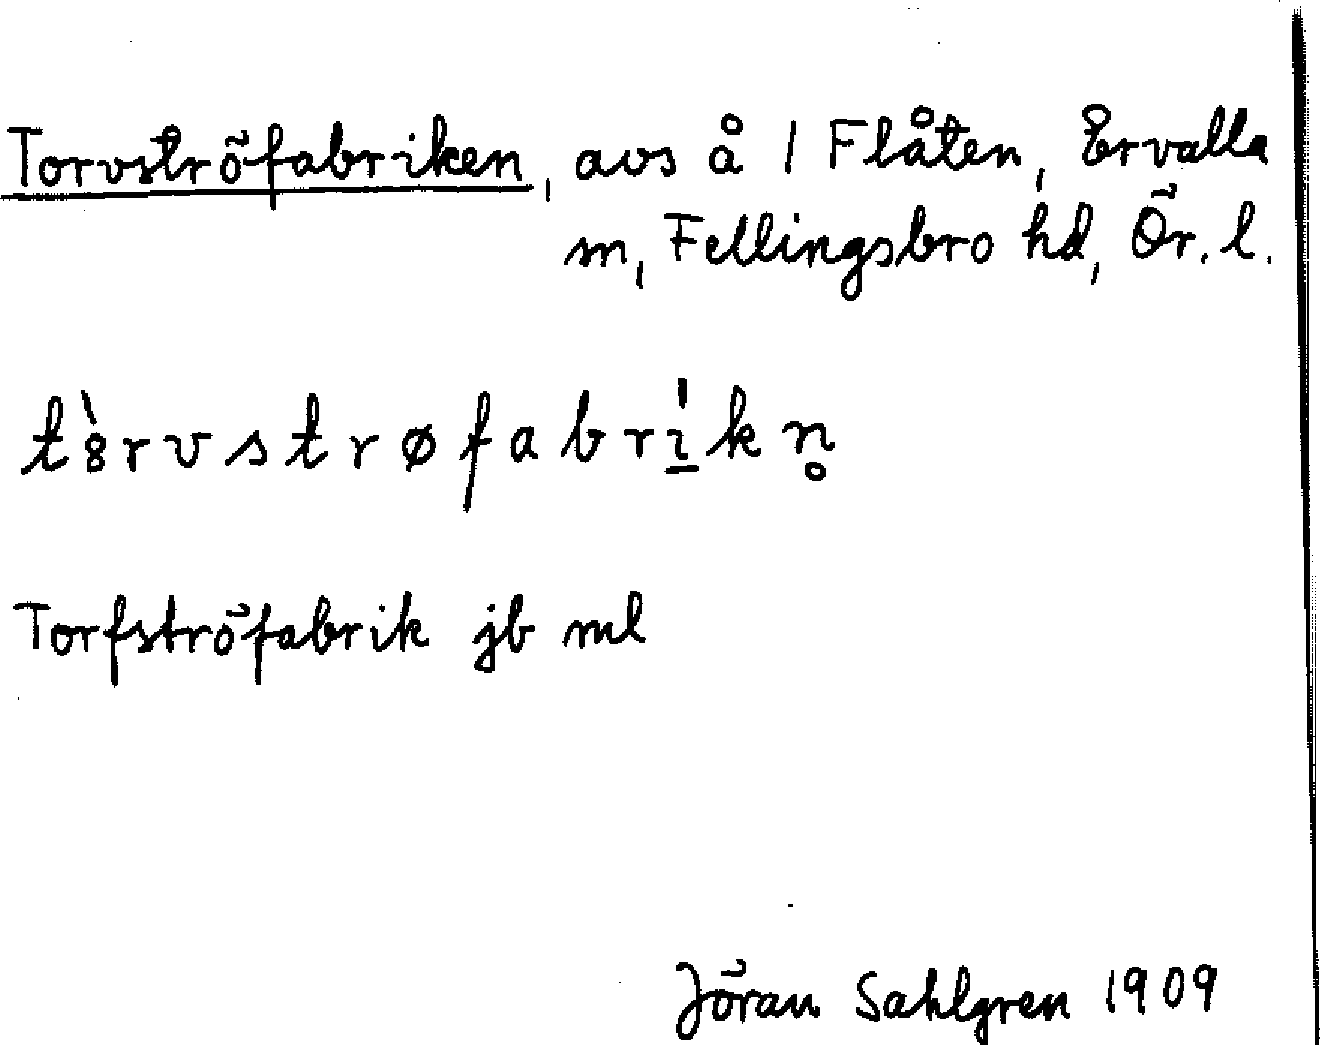 Torvströfabriken, avs å 1 Flåten, Ervalla
sn, Fellingsbro hd, Ör. l.
tȣ̀rvstrøfabrı̱́kn̥
Torfströfabrik jb ml
Jöran Sahlgren 1909